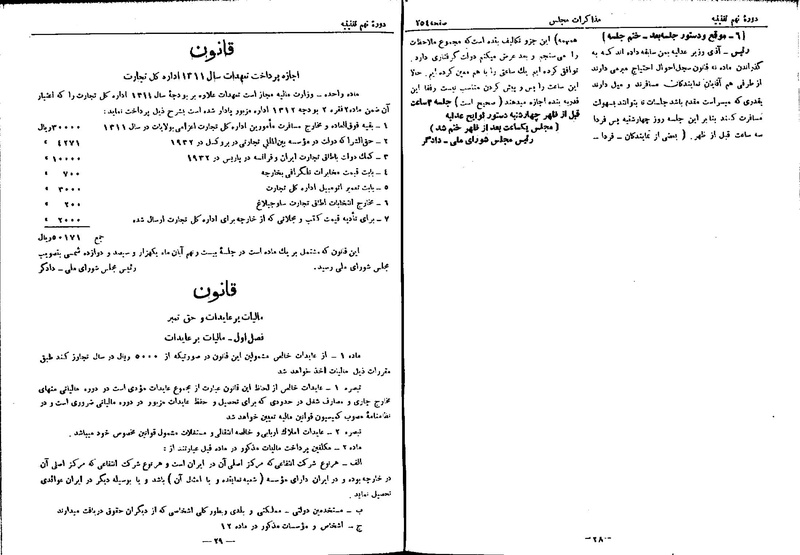 دورهٔ نهم تقنینیه
مذاکرات مجلس
صفحه ۲۵۴
۶ - موقع و دستور جلسه بعد - ختم جلسه )
رئیس - آقای وزیر عدلیه بمن سابقه داده اند که به
گذراندن ماده نه قانون سجل احوال احتیاج مبرمی دارند
از طرفی هم آقایان نمایندگان مسافرند و میل دارند
بقدری که میسر است مقدم باشد جلسات تا بتوانند بسهولت
مسافرت کنند بنا بر این جلسه روز چهارشنبه پس فردا
سه ساعت قبل از ظهر . ( بعضی از نمایندگان - فردا -
همیمه ) این جزو تکالیف بنده است که مجموع ملاحظات
را می سنجم و بعد عرض میکنم دولت گرفتاری دارد .
توافق کرده ایم یک ساعتی را با هم معین کرده ایم . حالا
این ساعت را پس و پیش کردن مناسب نیست رفقا این
قدر به بنده اجازه میدهند ( صحیح است ) جلسه ۳ ساعت
قبل از ظهر چهارشنبه دستور لوایح عدلیه
( مجلس یکساعت بعد از ظهر ختم شد )
رئیس مجلس شورای ملی - دادگر
-۲۸-
دورهٔ نهم تقنینیه
قانون
اجازه پرداخت تعهدات سال ۱۳۱۱ اداره کل تجارت
ماده واحده - وزارت مالیه مجاز است تعهدات علاوه بر بودجهٔ سال ۱۳۱۱ اداره کل تجارت را که اعتبار
آن ضمن ماده ۲ فقره ۲ بودجه ۱۳۱۲ اداره مزبور پادار شده است بشرح ذیل پرداخت نماید:
۱ - بقیه فوق‌العاده و مخارج مسافرت مأمورین اداره کل تجارت اعزامی بولایات در سال ۱۳۱۱ ۳۰۰۰۰ ریال
۲ - حق‌الشرکه دولت در مؤسسه بین‌المللی تجارتی در بروکسل در ۱۹۳۲ ۴۲۷۱ »
۳ - کمک دولت باطاق تجارت ایران و فرانسه در پاریس در ۱۹۳۲ ۱۰۰۰۰ »
۴ - بابت قیمت مخابرات تلگرافی بخارجه ۷۰۰ »
۵ - بابت تعمیر اتومبیل اداره کل تجارت ۳۰۰۰ »
۶ - مخارج انتخابات اطاق تجارت ساوجبلاغ ۲۰۰ »
۷ - برای تأدیه قیمت کتب و مجلاتی که از خارجه برای اداره کل تجارت ارسال شده ۲۰۰۰ »
جمع ۵۰۱۷۱ ریال
این قانون که مشتمل بر یک ماده است در جلسهٔ بیست و نهم آبان ماه یکهزار و سیصد و دوازده شمسی بتصویب
مجلس شورای ملی رسید . رئیس مجلس شورای ملی - دادگر
قانون
مالیات بر عایدات و حق تمبر
فصل اول - مالیات بر عایدات
ماده ۱ - از عایدات خالص مشمولین این قانون در صورتیکه از ۵۰۰۰ ریال در سال تجاوز کند طبق
مقررات ذیل مالیات اخذ خواهد شد
تبصره ۱ - عایدات خالص از لحاظ این قانون عبارت از مجموع عایدات مؤدی است در دوره مالیاتی منهای
مخارج جاری و مصارف شغل در حدودی که برای تحصیل و حفظ عایدات مزبور در دوره مالیاتی ضروری است و در
نظامنامهٔ مصوب کمیسیون قوانین مالیه تعیین خواهد شد
تبصره ۲ - عایدات املاک اربابی و خالصه انتقالی و مستغلات مشمول قوانین مخصوص خود میباشد .
ماده ۲ - مکلفین پرداخت مالیات مذکور در ماده قبل عبارتند از :
الف - هر نوع شرکت انتفاعی که مرکز اصلی آن در ایران است و هر نوع شرکت انتفاعی که مرکز اصلی آن
در خارجه بوده و در ایران دارای مؤسسه ( شعبه نماینده و یا امثال آن ) باشد و یا بوسیله دیگر در ایران عوائدی
تحصیل نماید .
ب - مستخدمین دولتی - مملکتی و بلدی و بطور کلی اشخاصی که از دیگران حقوق دریافت میدارند
ج - اشخاص و مؤسسات مذکور در ماده ۱۲
-۲۹-